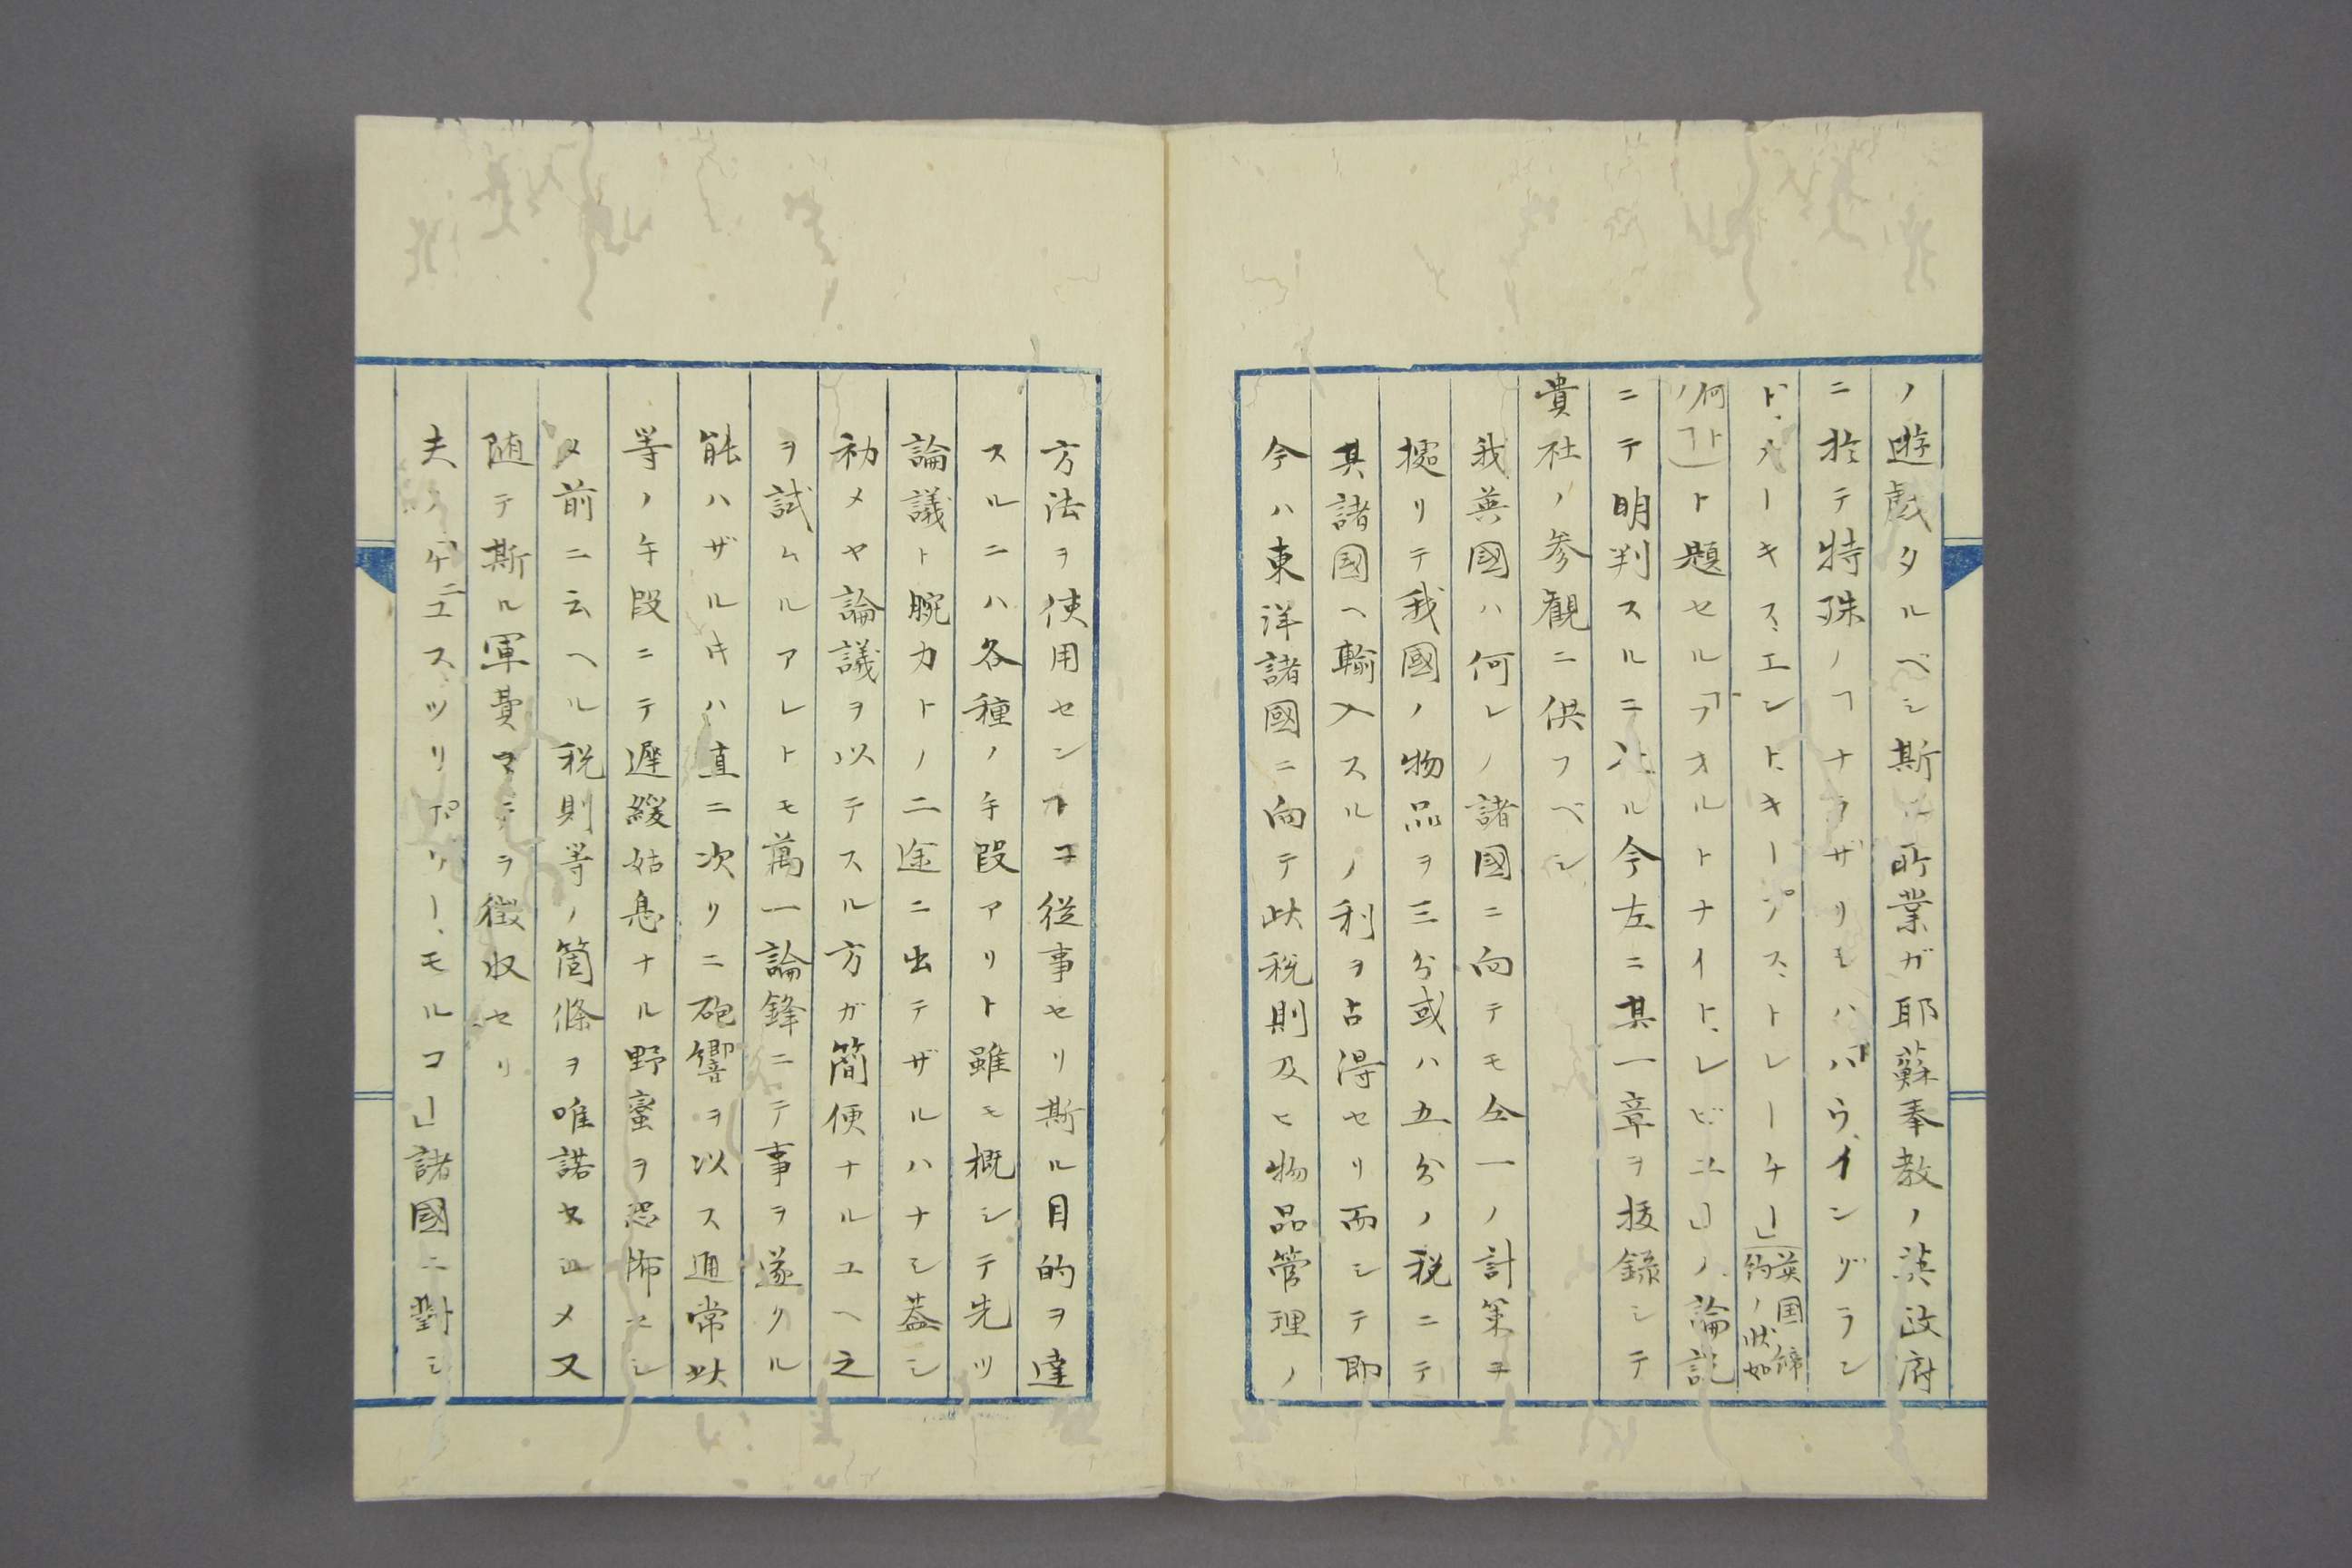 ノ遊戯タルベシ斯ル所業ガ耶蘇奉教ノ漢政府
ニ於テ特殊ノヿナラザリセハ「ハウ、イングラン
ド、メーキス、エンド、キープス、トレーチー」英国締約ノ状如
何ノヿト題セル「フオルトナイト、レビユ」ノ論説
ニテ明判スルニ足ル今左ニ其一章ヲ抜録シテ
貴社ノ参観ニ供フベシ
我英國ハ何レノ諸國ニ向テモ仝一ノ計策ヲ
據リテ我國ノ物品ヲ三分或ハ五分ノ税ニテ
其諸國ヘ輸入スルノ利ヲ占得セリ而シテ即
今ハ東洋諸國ニ向テ此税則及ヒ物品管理ノ
方法ヲ使用センヿニ従事セリ斯ル目的ヲ達
スルニハ各種ノ手段アリト雖モ概シテ先ツ
論議ト腕力トノ二途ニ出テザルハナシ蓋シ
初メヤ論議ヲ以テスル方ガ簡便ナルユヘ之
ヲ試ムルアレトモ萬一論鋒ニテ事ヲ遂クル
能ハザル𪜈ハ直ニ次クニ砲響ヲ以ス通常此
等ノ手段ニテ遲緩姑息ナル野蛮ヲ恐怖セシ
メ前ニ云ヘル税則等ノ箇條ヲ唯諾セシメ又
随テ斯ル軍費マデヲ徴収セリ
夫ノ「ケニユス、ツリポリー、モルコ」諸國ニ對シ